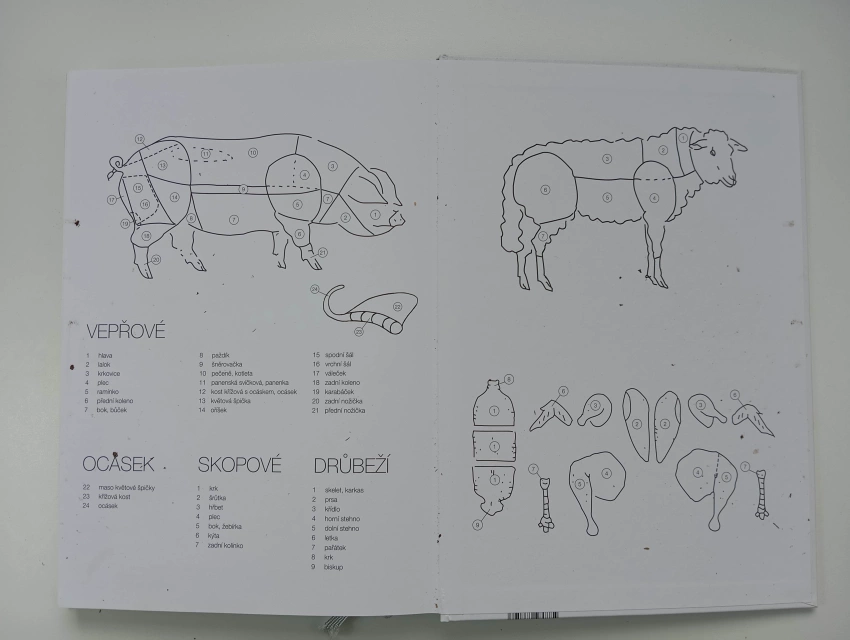 VEPŘOVÉ
1 hlava
2 lalok
3 krkovice
4 plec
5 ramínko
6 přední koleno
7 bok, bůček
8 paždík
9 šněrovačka
10 pečeně, kotleta
11 panenská svíčková, panenka
12 kost křížová s ocáskem, ocásek
13 květová špička
14 oříšek
15 spodní šál
16 vrchní šál
17 váleček
18 zadní koleno
19 karabáček
20 zadní nožička
21 přední nožička
OCÁSEK
22 maso květové špičky
23 křížová kost
24 ocásek
SKOPOVÉ
1 krk
2 šrůtka
3 hřbet
4 plec
5 bok, žebírka
6 kýta
7 zadní kolínko
DRŮBEŽÍ
1 skelet, karkas
2 prsa
3 křídlo
4 horní stehno
5 dolní stehno
6 letka
7 pařátek
8 krk
9 biskup